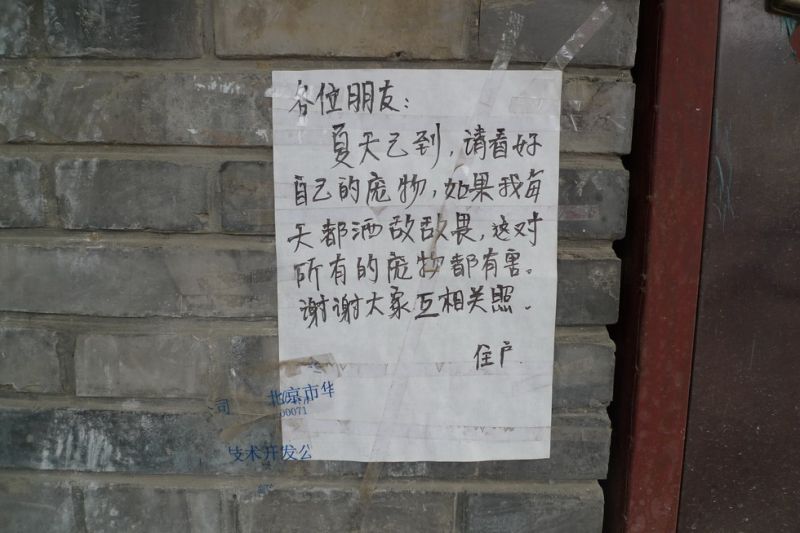 各位朋友：
夏天己到，请看好
自己的宠物，如果我每
天都洒敌敌畏，这对
所有的宠物都有害。
谢谢大家互相关照。
住户
司 北京市华
00071
技术开发公